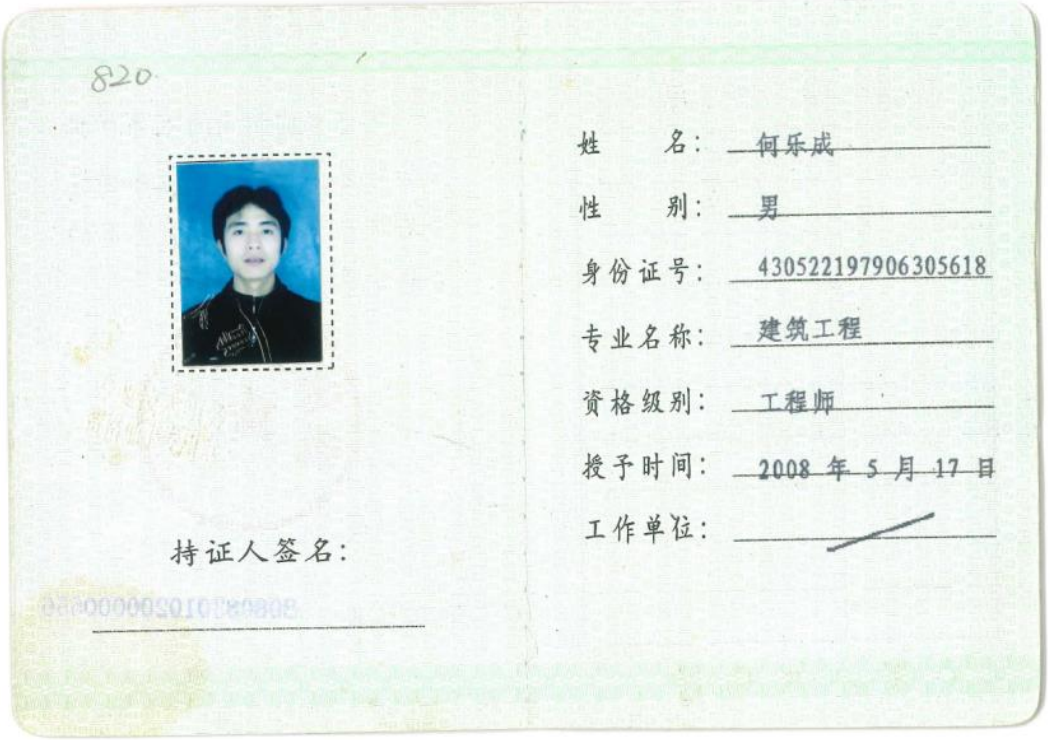 820
持证人签名：
姓 名： 何乐成
性 别： 男
身份证号： 430522197906305618
专业名称： 建筑工程
资格级别： 工程师
授予时间： 2008 年 5 月 17 日
工作单位：